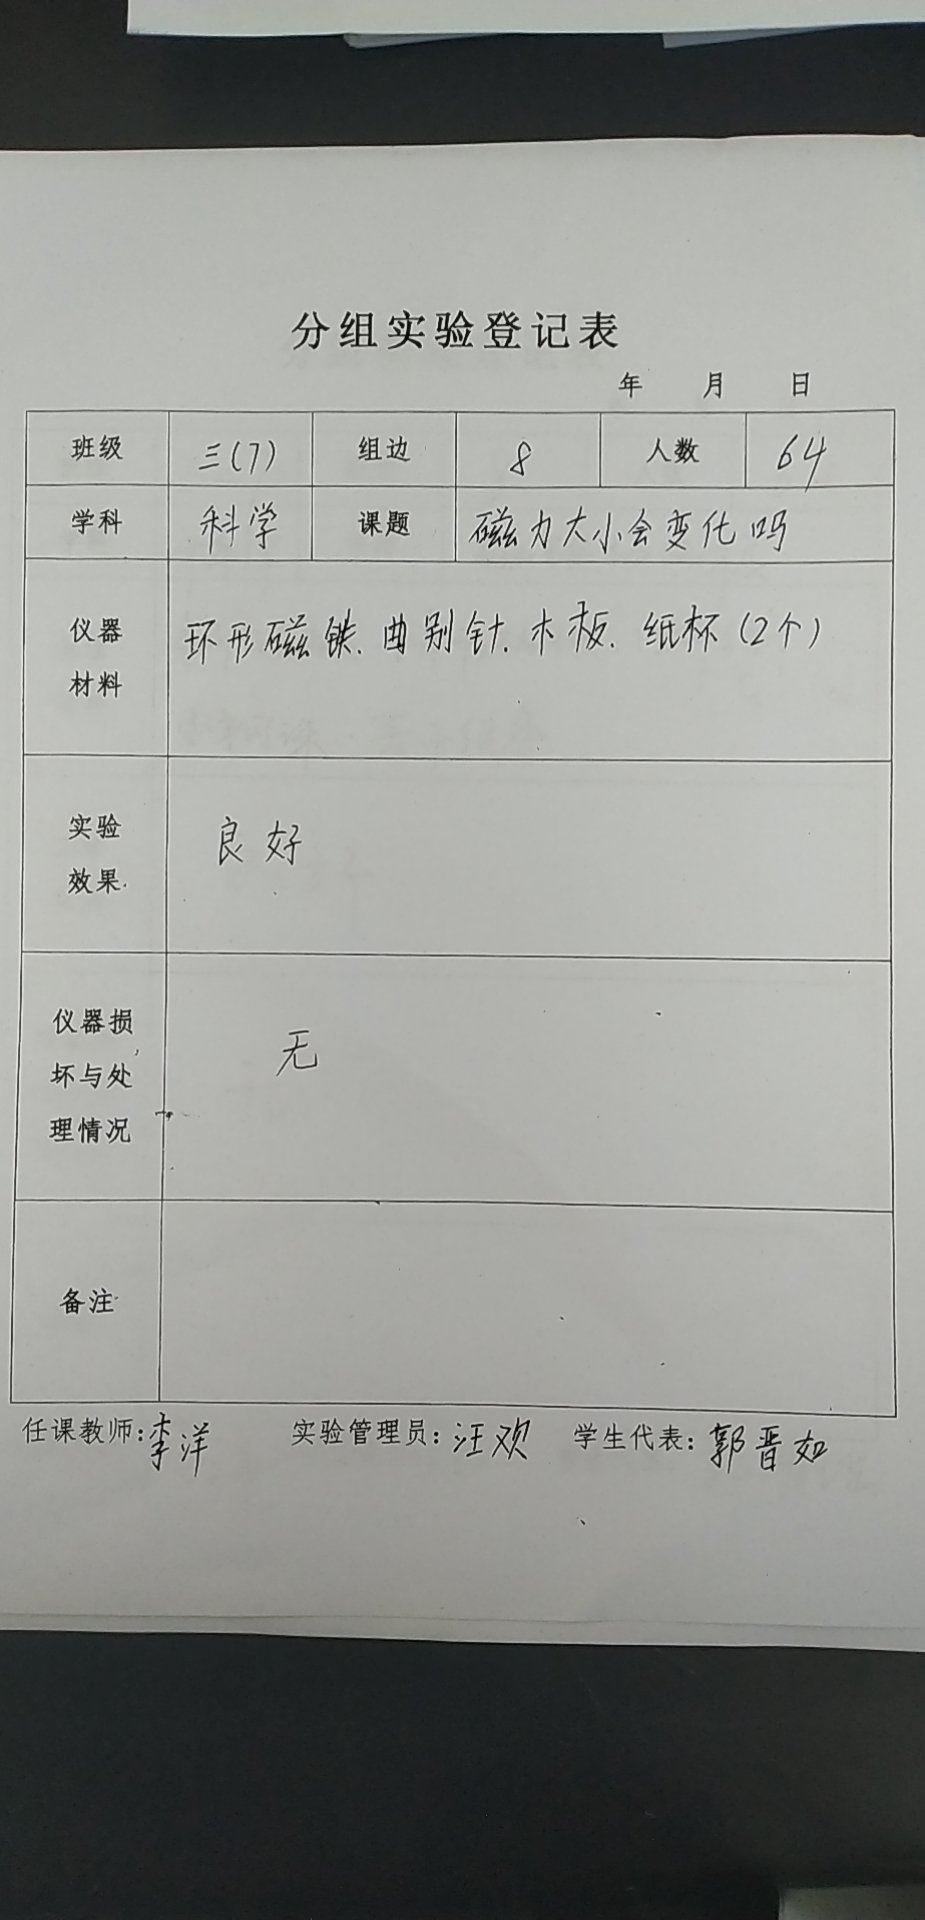 分组实验登记表
年 月 日
班级 三(7) 组边 8 人数 64
学科 科学 课题 磁力大小会变化吗
仪器
材料
环形磁铁.曲别针.木板.纸杯(2个)
实验
效果
良好
仪器损
坏与处
理情况
无
备注
任课教师:李洋 实验管理员:汪欢 学生代表:郭晋如